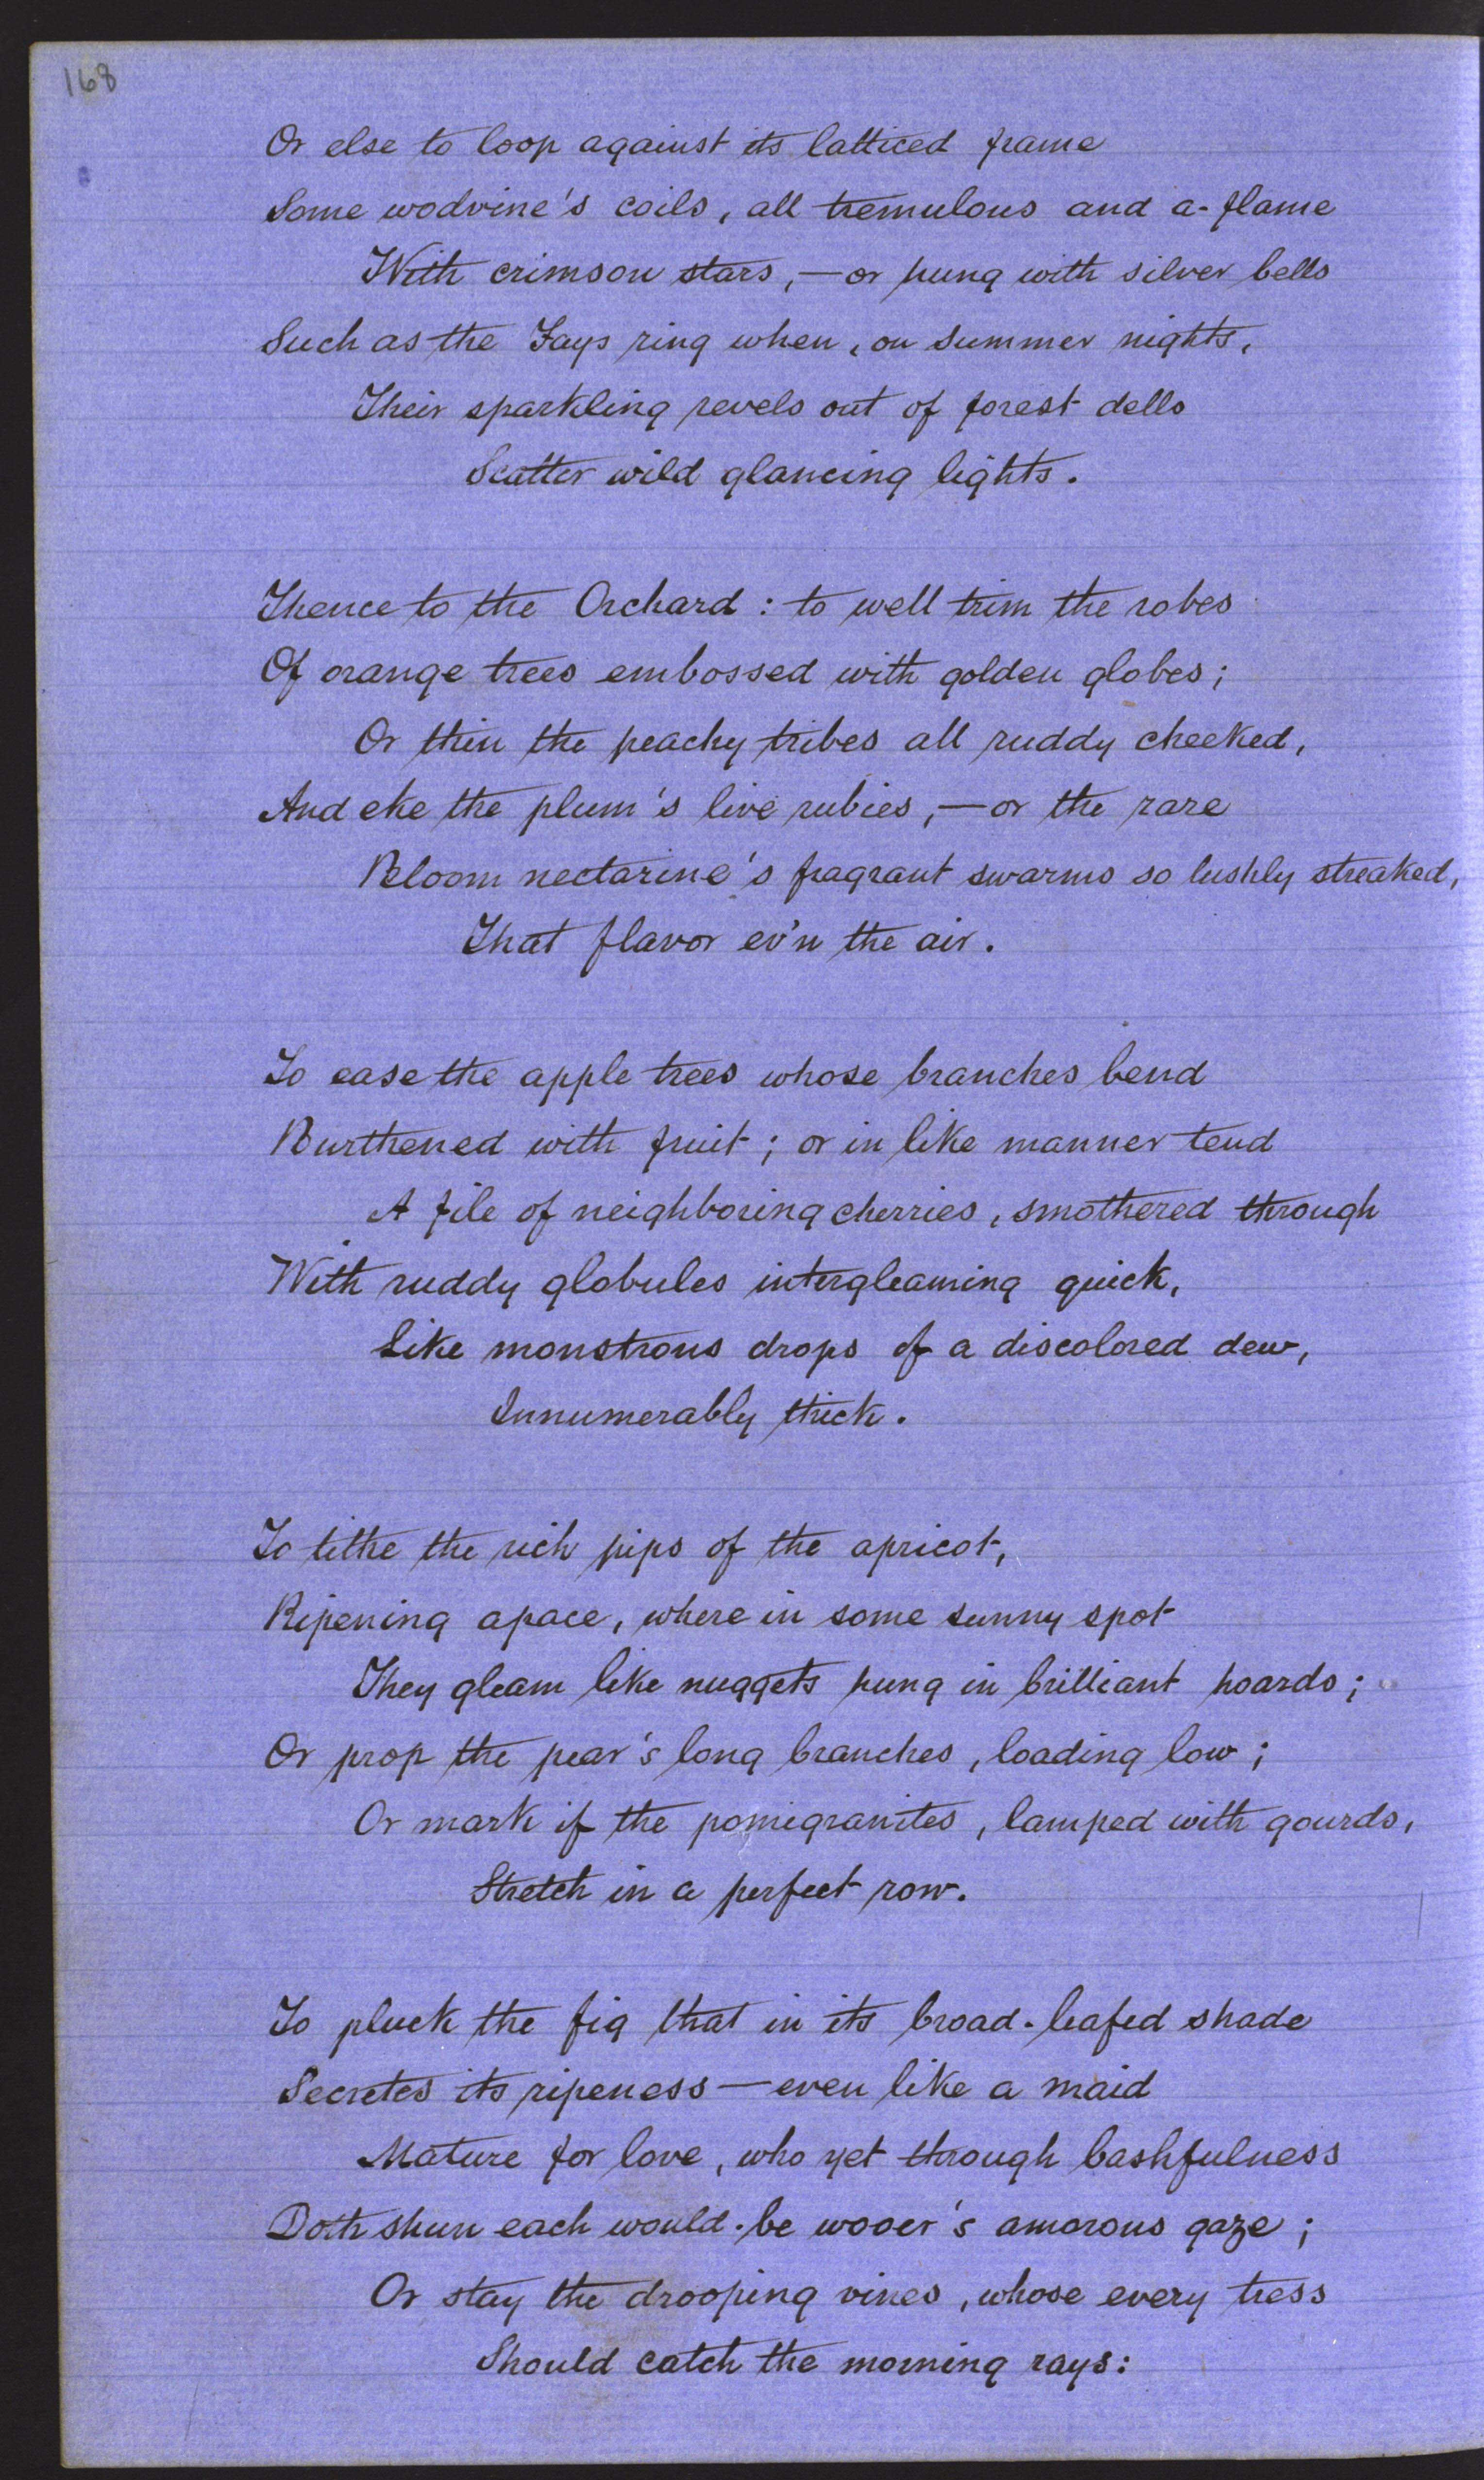 168
Or else to loop against its latticed frame
Some wodvine's coils, all tremulous and a-flame
With crimson stars, — or hung with silver bells
Such as the Fays ring when, on summer nights,
Their sparkling revels out of forest dells
Scatter wild glancing lights.
Thence to the Orchard: to well trim the robes
Of orange trees embossed with golden globes;
Or thin the peachy tribes all ruddy cheeked,
And eke the plum's live rubies, — or the rare
Bloom nectarine's fragrant swarms so lushly streaked,
That flavor ev'n the air.
To ease the apple trees whose branches bend
Burthened with fruit; or in like manner tend
A file of neighboring cherries, smothered through
With ruddy globules intergleaming quick,
Like monstrous drops of a discolored dew,
Innumerably thick.
To tithe the rich pips of the apricot,
Ripening apace, where in some sunny spot
They gleam like nuggets hung in brilliant hoards;
Or prop the pear's long branches, loading low;
Or mark if the pomigranites, lamped with gourds,
Stretch in a perfect row.
To pluck the fig that in its broad-leafed shade
Secretes its ripeness — even like a maid
Mature for love, who yet through bashfulness
Doth shun each would-be wooer's amorous gaze;
Or stay the drooping vines, whose every tress
Should catch the morning rays: